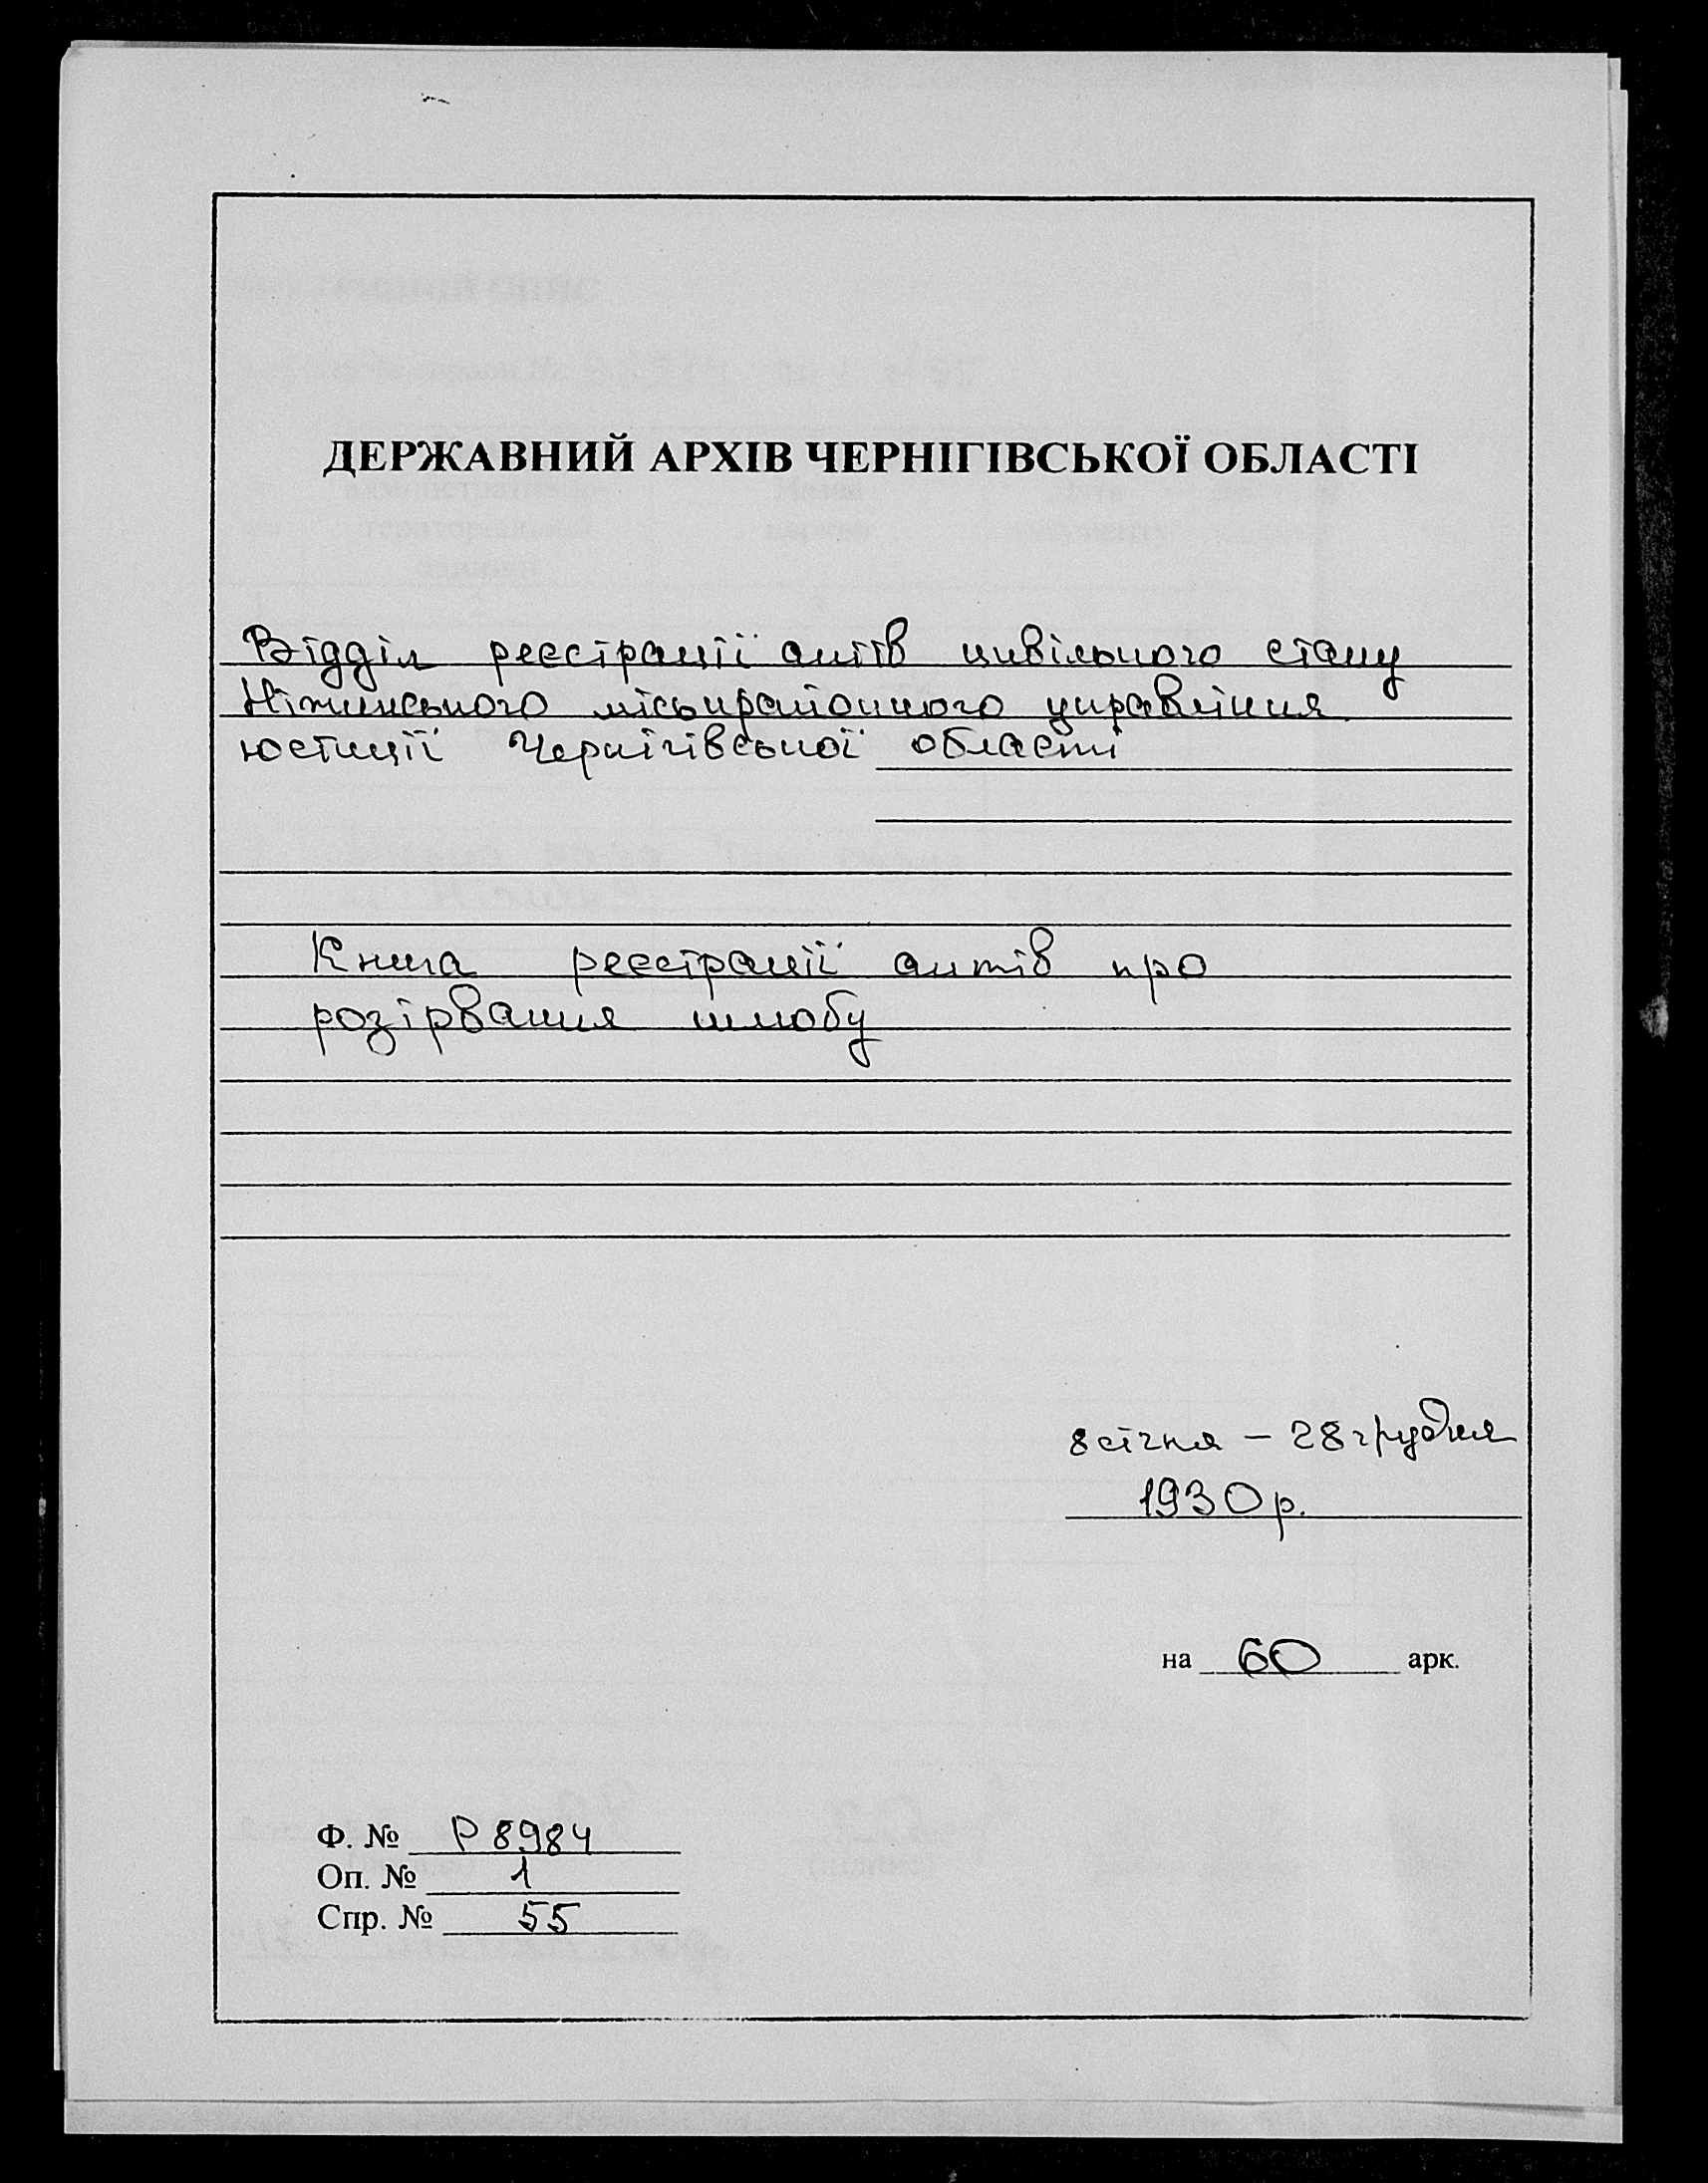 ДЕРЖАВНИЙ АРХІВ ЧЕРНІГІВСЬКОЇ ОБЛАСТІ
Відділ реєстрації актів цивільного стану
Ніжинського міськрайонного управління
юстиції Чернігівської області
Книга реєстрації актів про
розірвання шлюбу
8 січня – 28 грудня
1930 р.
на 60 арк.
Ф. № Р 8984
Оп. № 1
Спр. № 55